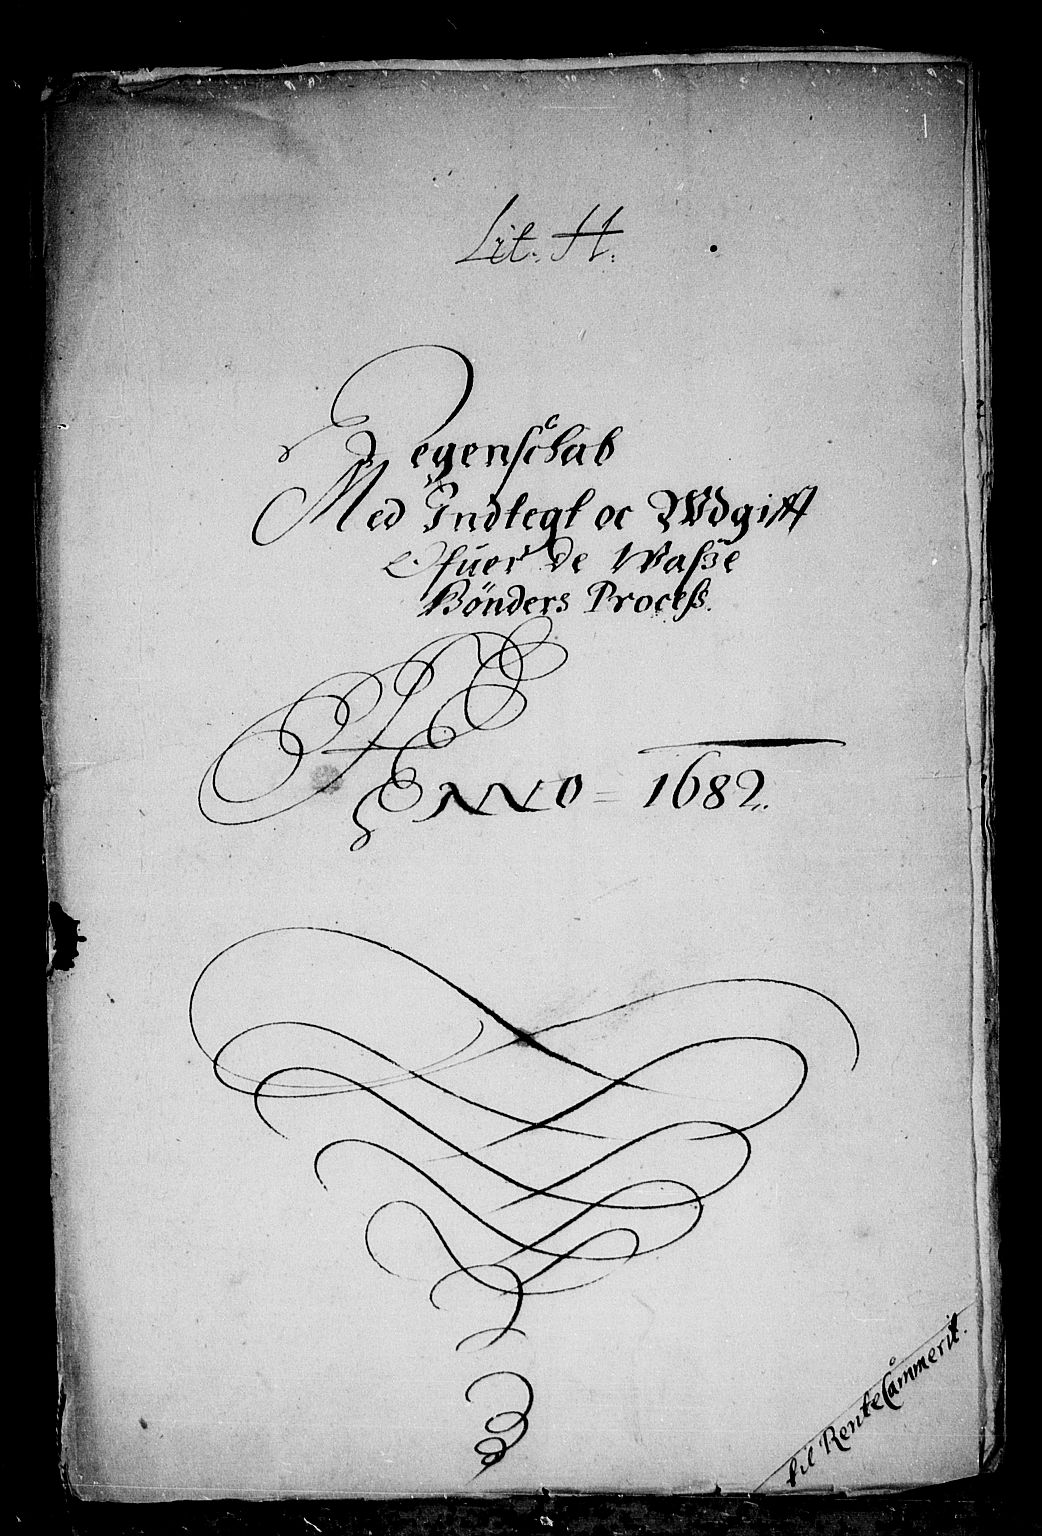 Lit. H.
Regenschab
Med Indtegt oc Wdgifft
Ofuer de Waße
Bönders Proceß.
ANNO = 1682.
til RenteCammerit.